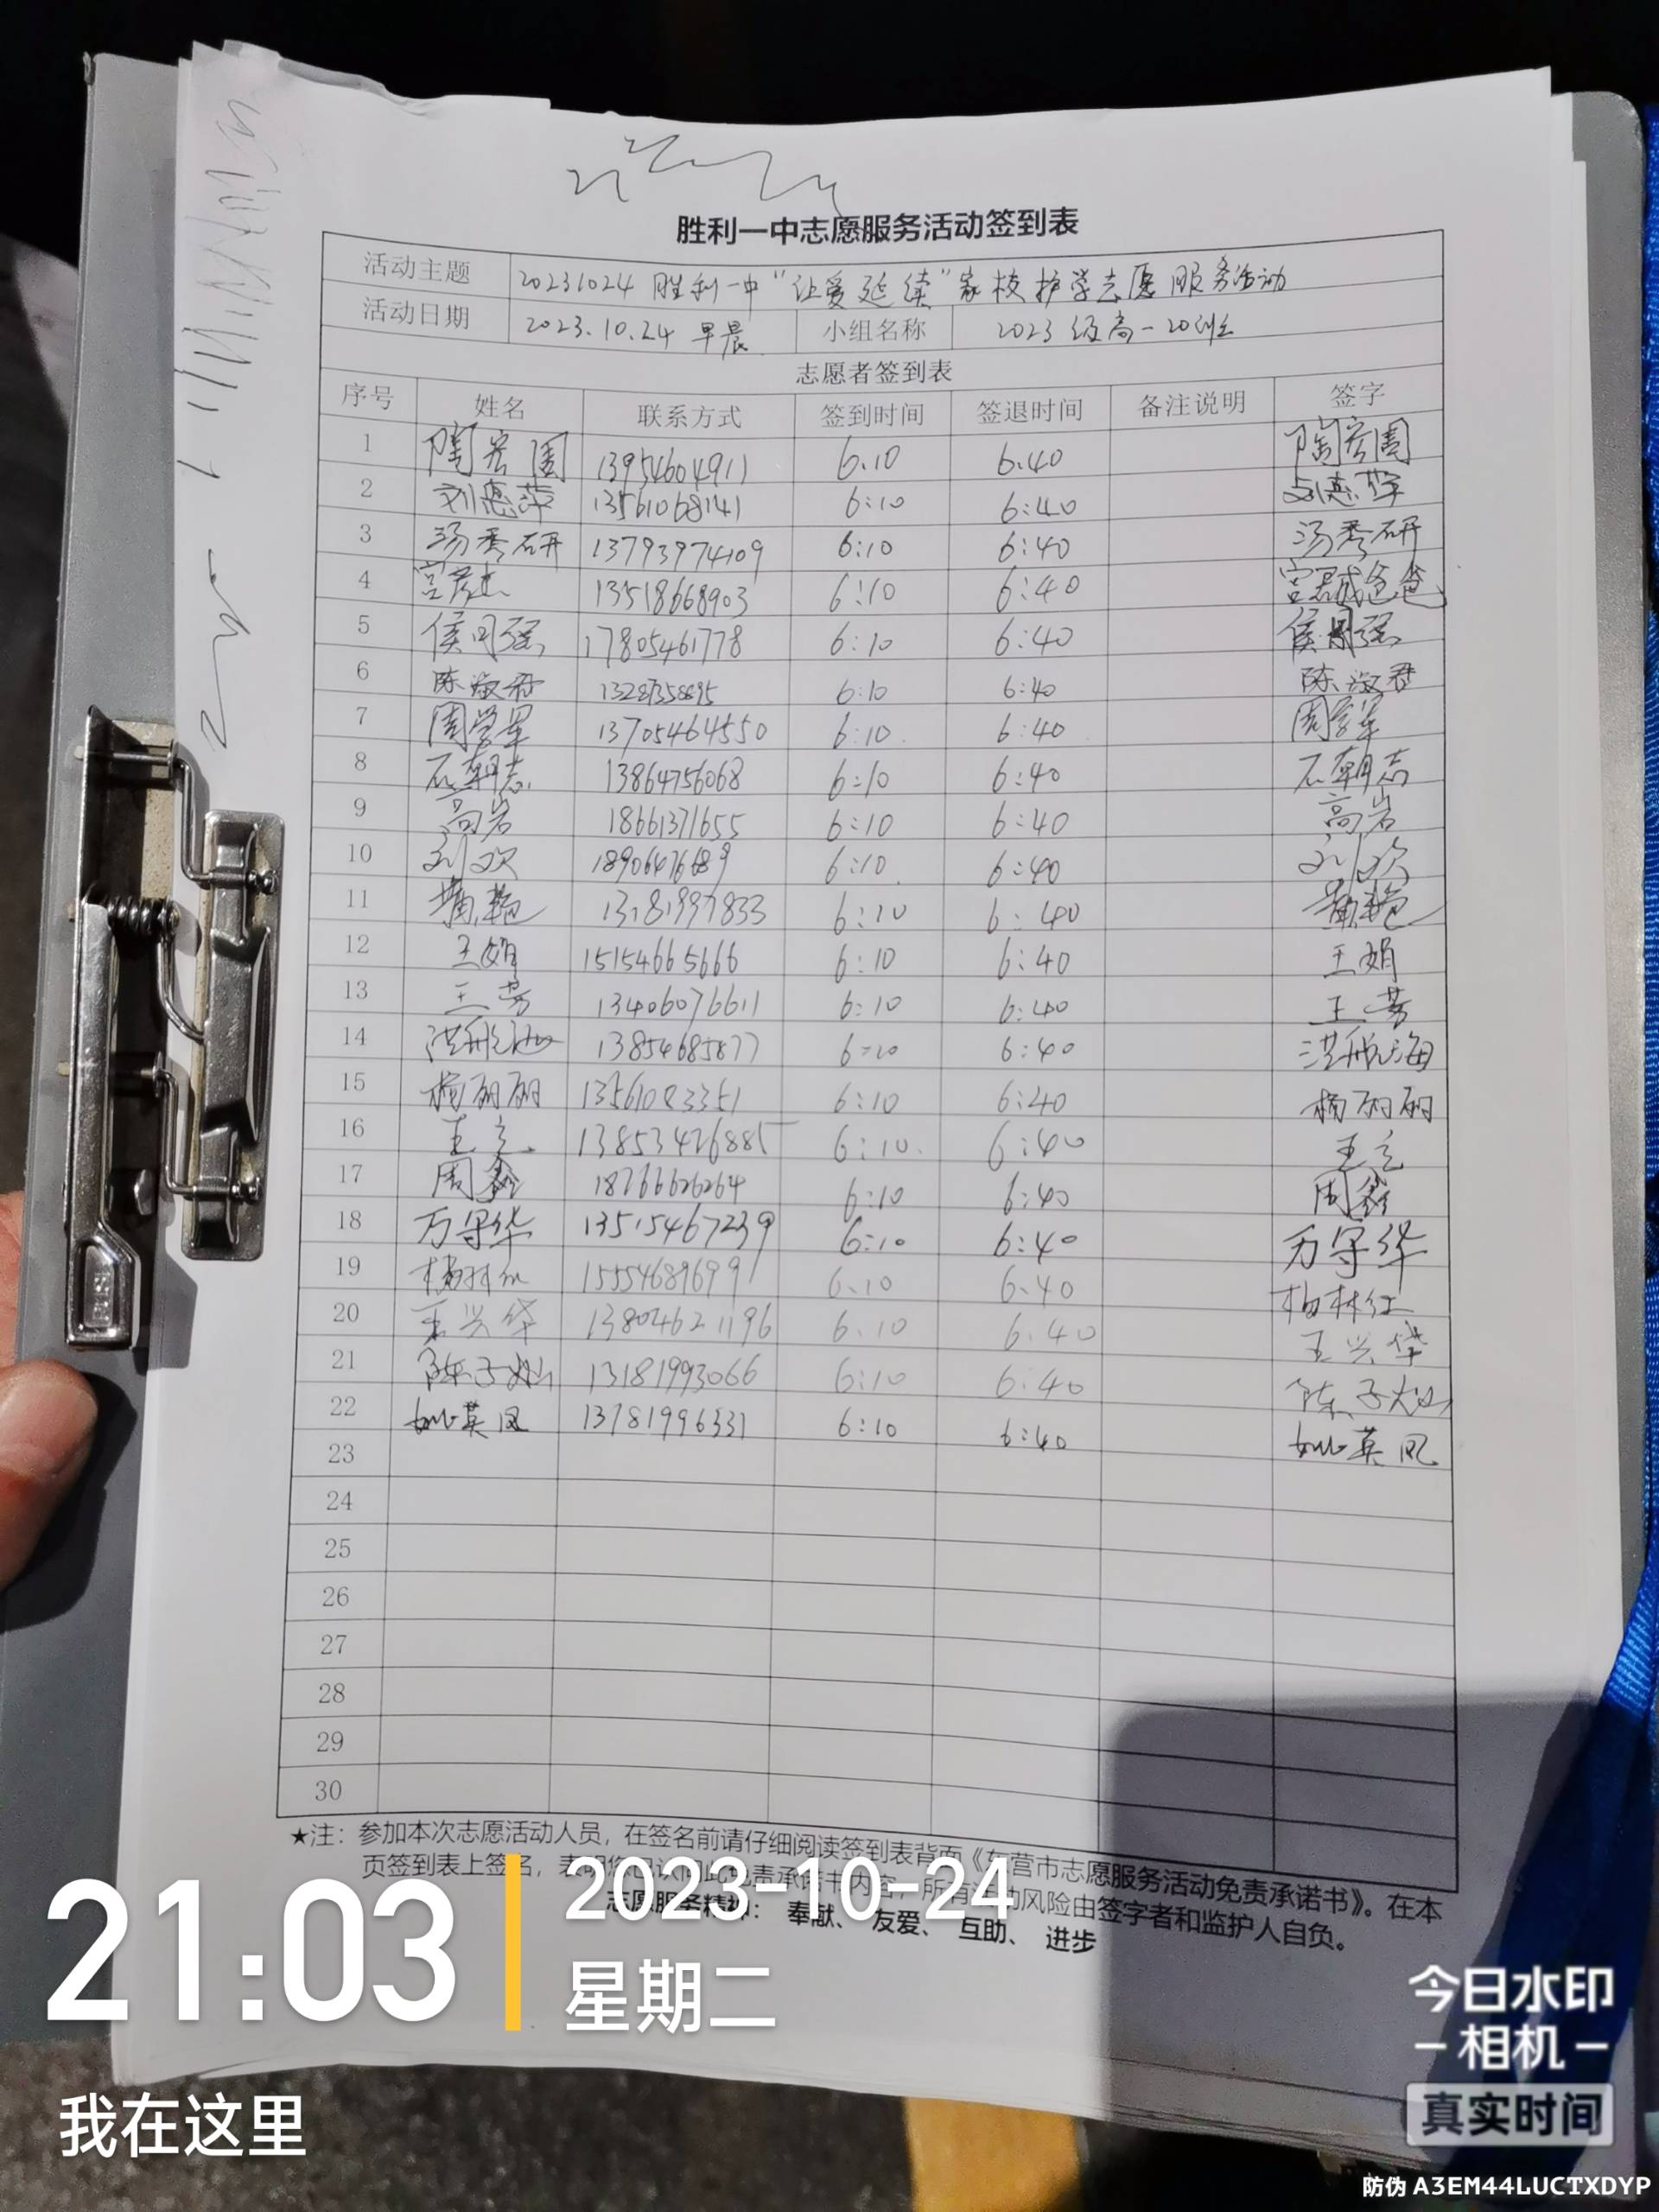 胜利一中志愿服务活动签到表
活动主题 20231024 胜利一中“让爱延续”家校护学志愿服务活动
活动日期 2023.10.24 早晨 小组名称 2023级高一20班
志愿者签到表
序号 姓名 联系方式 签到时间 签退时间 备注说明 签字
1 陶宏图 13954604911 6.10 6.40 陶宏图
2 刘惠萍 13561068141 6:10 6:40 刘惠萍
3 汤秀研 13793974109 6:10 6:40 汤秀研
4 13518668903 6:10 6:40
5 侯同强 17805461778 6:10 6:40 侯同强
6 陈淑君 6:10 6:40 陈淑君
7 周学军 13705464550 6:10 6:40 周学军
8 石朝志 13864756068 6:10 6:40 石朝志
9 高岩 18661371655 6:10 6:40 高岩
10 刘欢 6:10 6:40 刘欢
11 13181997833 6:10 6:40
12 王娟 15154665666 6:10 6:40 王娟
13 王芳 13406076611 6:10 6:40 王芳
14 洪航海 13854685877 6:20 6:40 洪航海
15 杨丽丽 13561083351 6:10 6:40 杨丽丽
16 王立 13853426885 6:10 6:40 王立
17 周鑫 18266626264 6:10 6:40 周鑫
18 万守华 13515467239 6:10 6:40 万守华
19 15554689699 6.10 6.40
20 王兴华 13804621196 6.10 6.40 王兴华
21 陈子灿 13181993066 6:10 6:40 陈子灿
22 英凤 13781996331 6:10 6:40 英凤
23
24
25
26
27
28
29
30
★注：参加本次志愿活动人员，在签名前请仔细阅读签到表背面《东营市志愿服务活动免责承诺书》。在本
页签到表上签名，表明您已认同此免责承诺书内容，所有活动风险由签字者和监护人自负。
志愿服务精神： 奉献、 友爱、 互助、 进步
21:03
2023-10-24
星期二
我在这里
今日水印
相机
真实时间
防伪 A3EM44LUCTXDYP